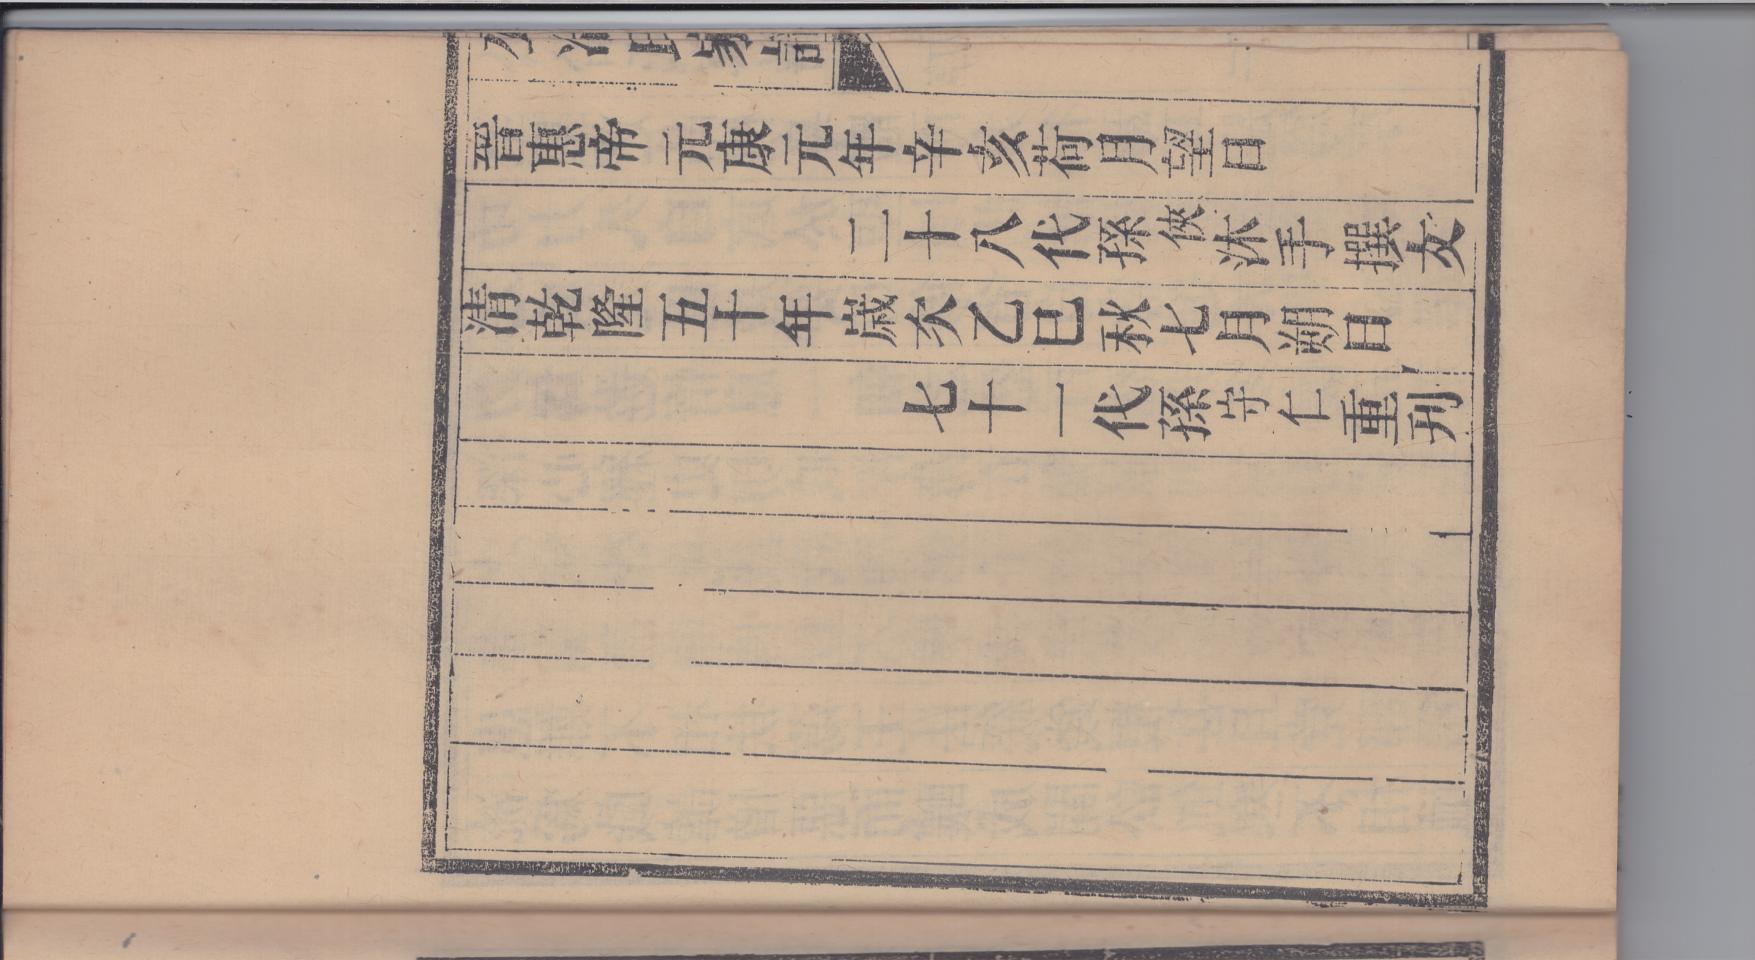 晉惠帝元康元年辛亥荷月望日
二十八代孫俠沐手撰友
清乾隆五十年歲次乙巳秋七月朔日
七十一代孫守仁重刋